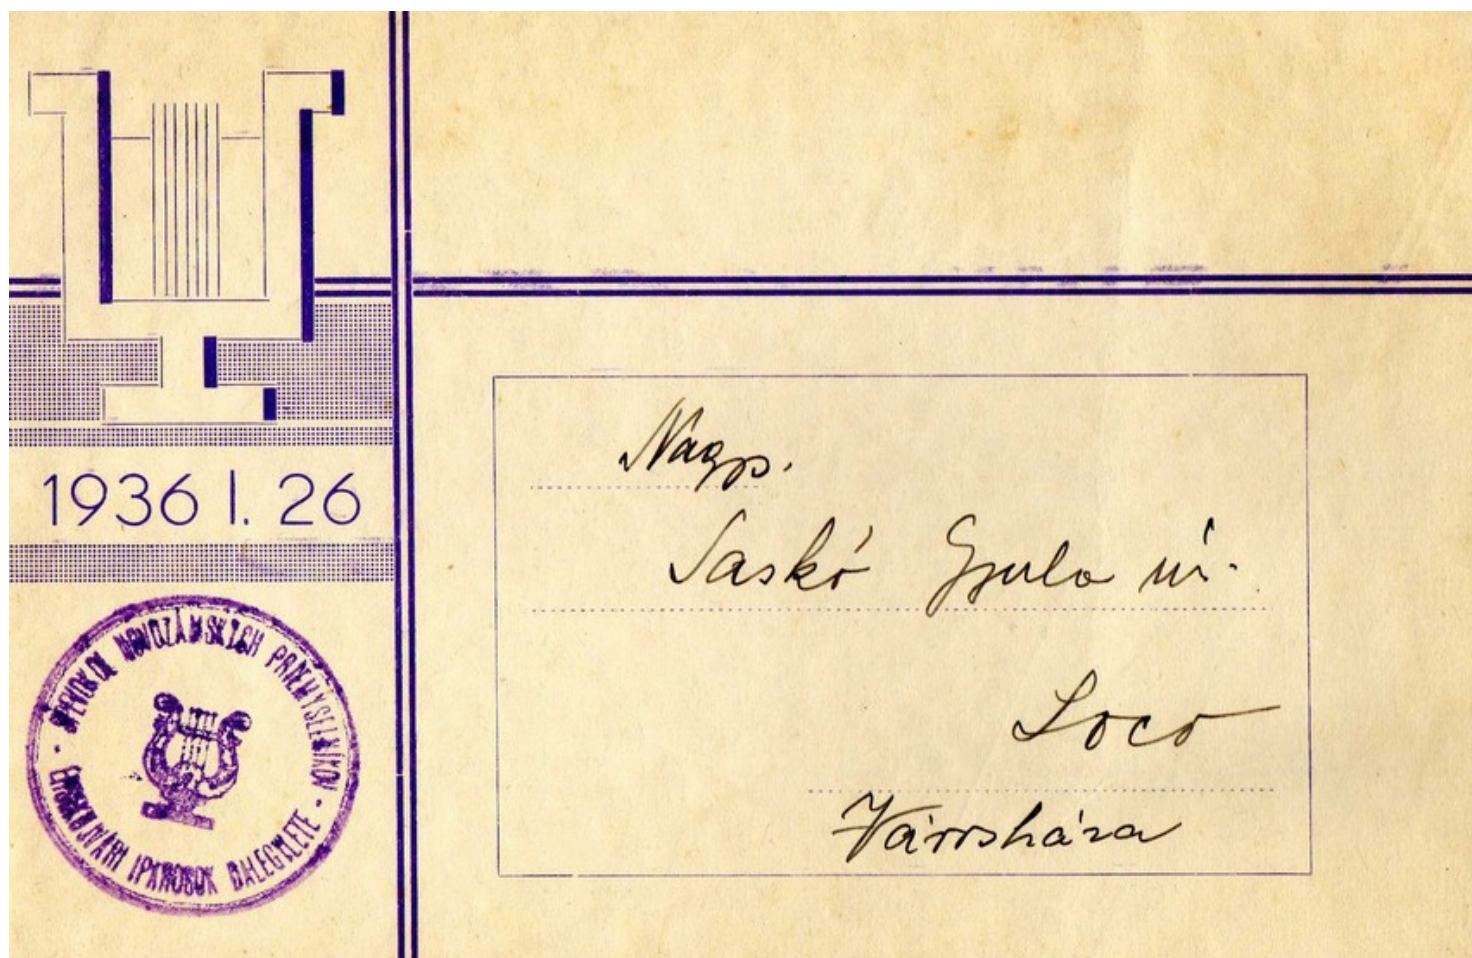 1936 I. 26
SPEVOKOL NOVOZÁMSKÝCH PRIEMYSELNÍKOV
ÉRSEKUJVÁRI IPAROSOK DALEGYLETE
Nags.
Saskó Gyula úr.
Loco
Városháza